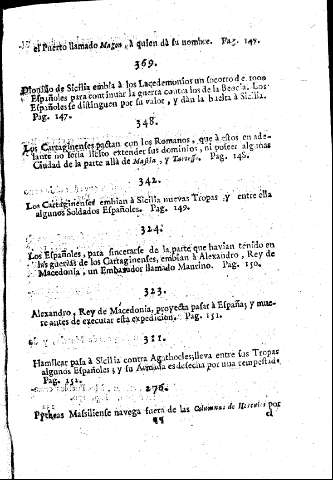 el Puerto llamado Magon, à quien dà su nombre. Pag. 147.
369.
Dionisio de Sicilia embia à los Lacedemonios un socorro de 1000
Españoles para continuar la guerra contra los de la Beocia. Los
Españoles se distinguen por su valor, y dàn la buelta à Sicilia.
Pag. 147.
348.
Los Cartaginenses pactan con los Romanos, que à estos en ade-
lante no seria licito extender sus dominios, ni poseer alguna
Ciudad de la parte allà de Mastia, y Tarteso. Pag. 148.
342.
Los Cartaginenses embian à Sicilia nuevas Tropas, y entre ella
algunos Soldados Españoles. Pag. 149.
324.
Los Españoles, para sincerarse de la parte que havian tenido en
las guerras de los Cartaginenses, embian à Alexandro, Rey de
Macedonia, un Embaxador llamado Maurino. Pag. 150.
323.
Alexandro, Rey de Macedonia, proyecta pasar à España; y mue-
re antes de executar esta expedicion. Pag. 151.
311.
Hamilcar pasa à Sicilia contra Agathocles; lleva entre sus Tropas
algunos Españoles; y su Armada es desecha por una tempestad.
Pag. 151.
276.
Pytheas Massiliense navega fuera de las Columnas de Hercules por
¶¶ el